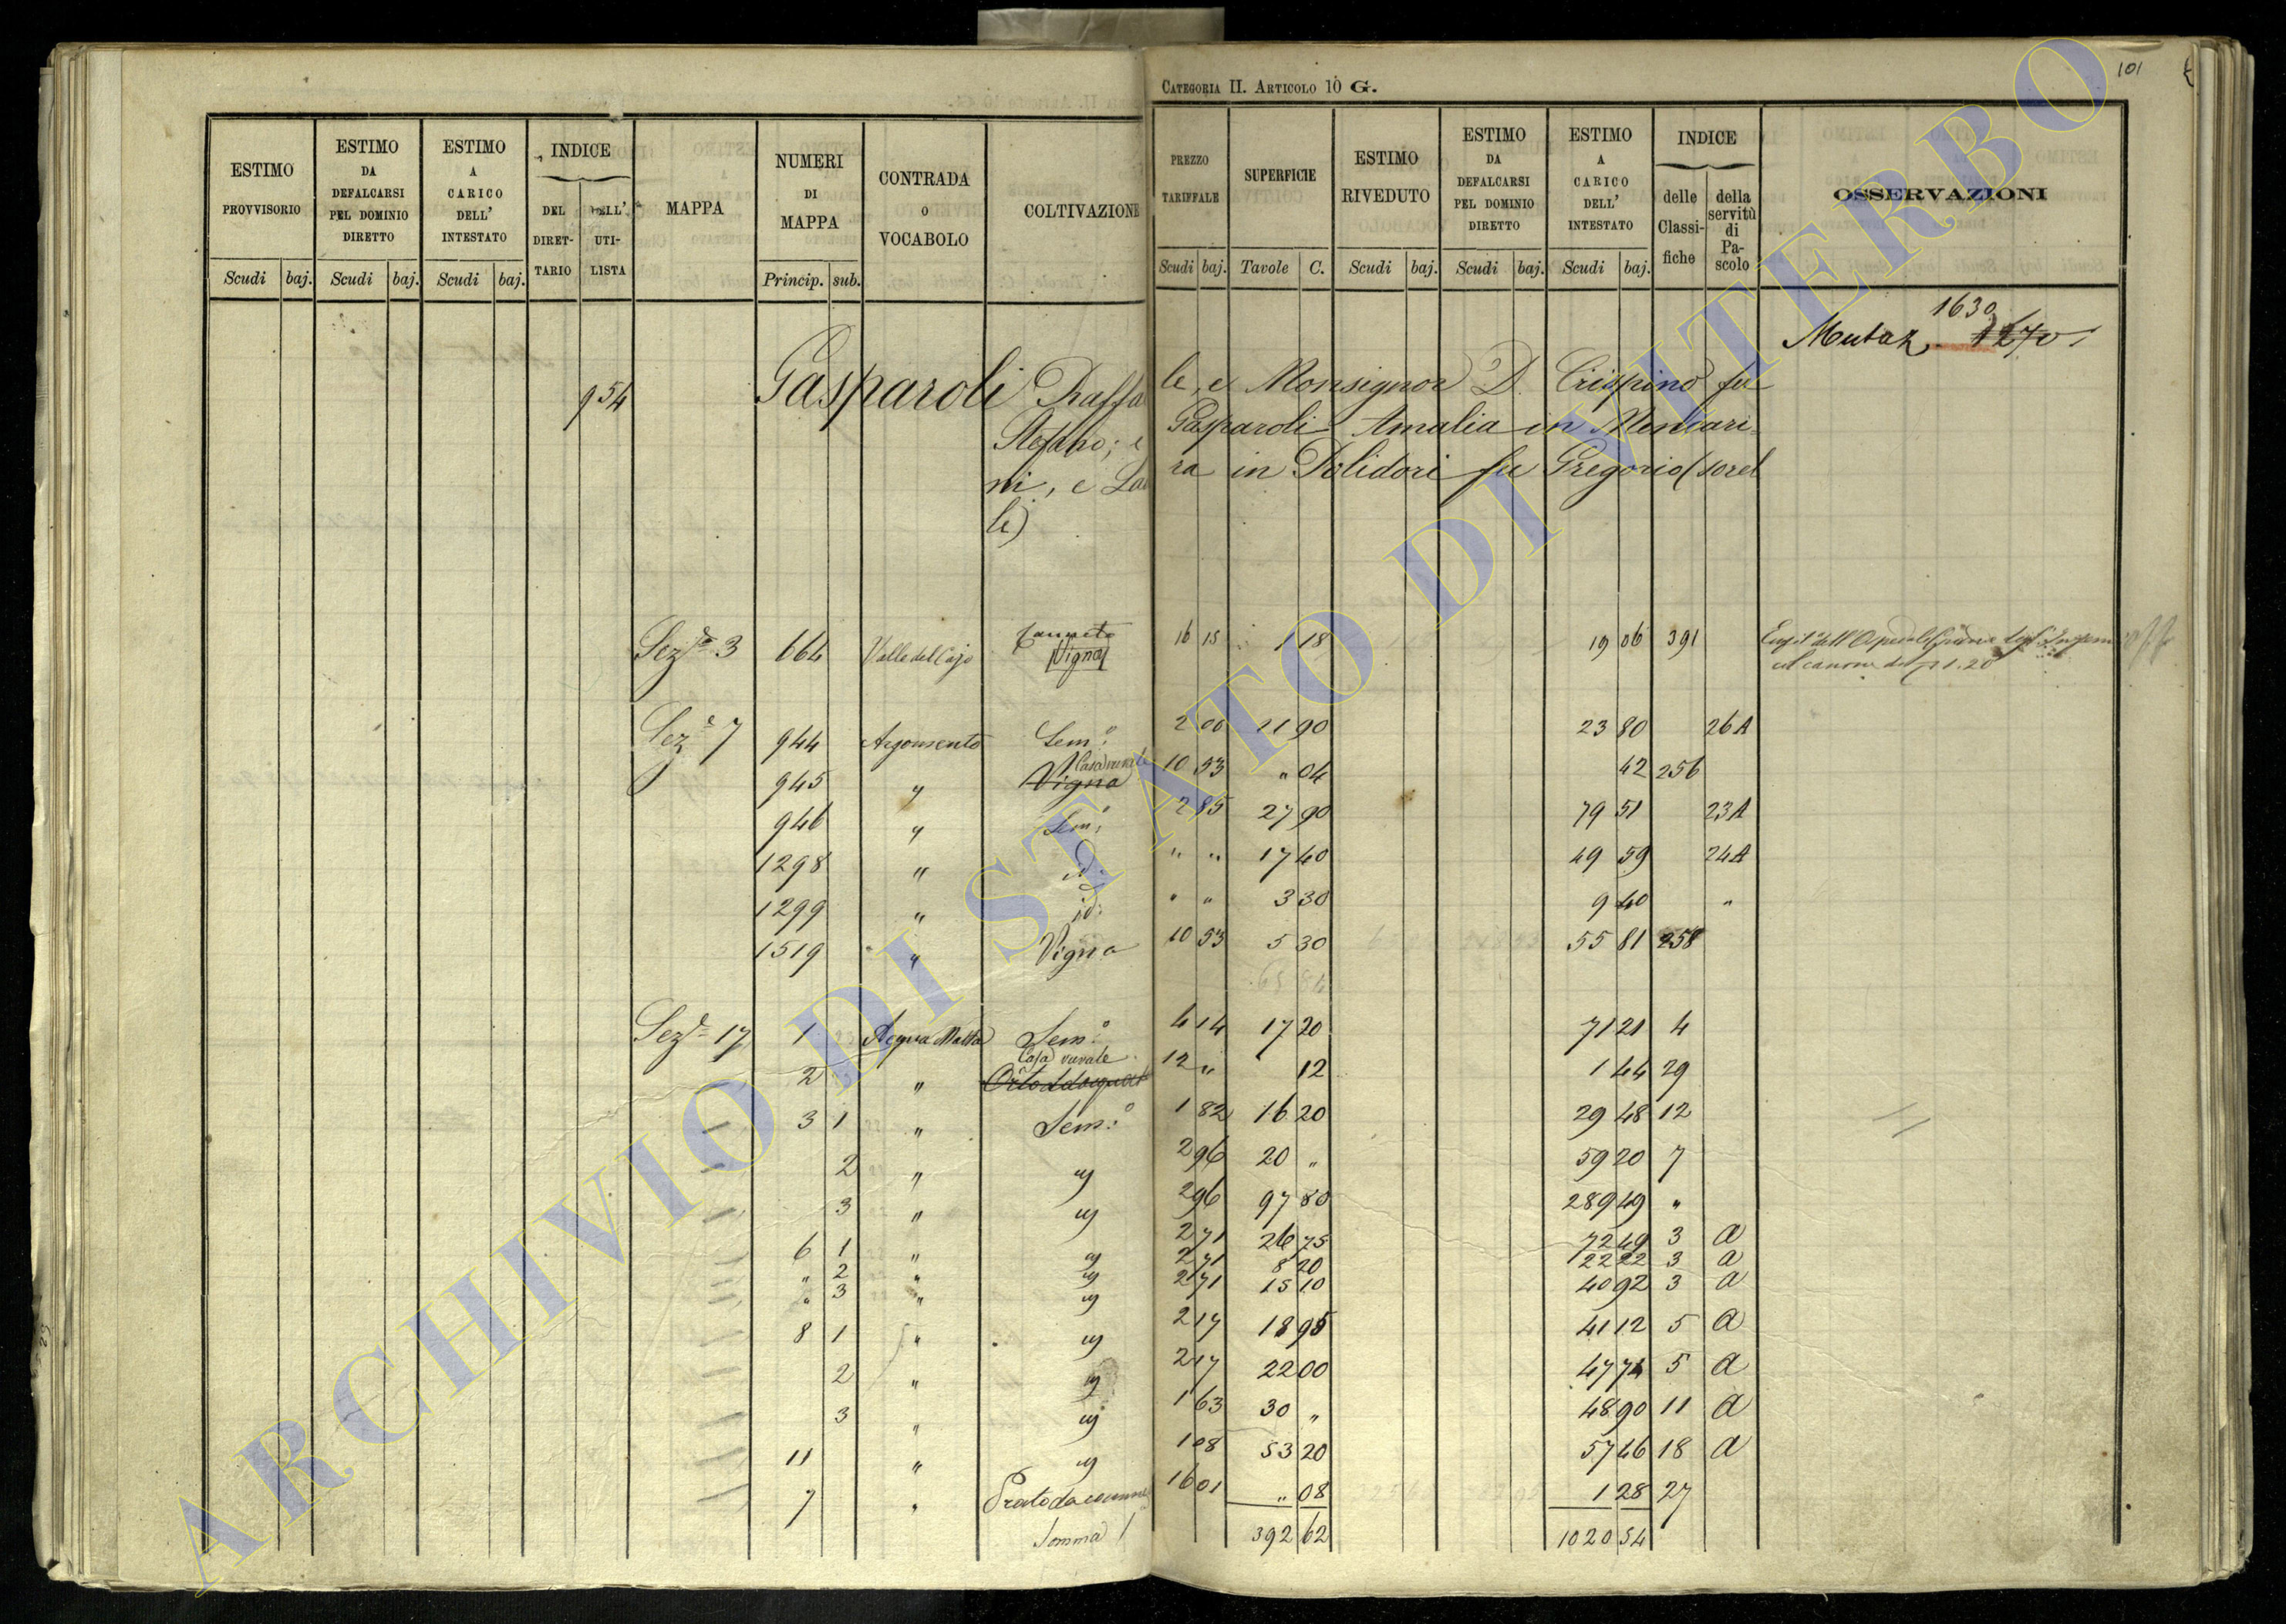 101
CATEGORIA II. ARTICOLO 10 G.
ESTIMO PROVVISORIO
ESTIMO DA DEFALCARSI PEL DOMINIO DIRETTO
ESTIMO A CARICO DELL' INTESTATO
INDICE
DEL DIRET-TARIO
DELL' UTI-LISTA
MAPPA
NUMERI DI MAPPA
CONTRADA O VOCABOLO
COLTIVAZIONE
PREZZO TARIFFALE
SUPERFICIE
ESTIMO RIVEDUTO
ESTIMO DA DEFALCARSI PEL DOMINIO DIRETTO
ESTIMO A CARICO DELL' INTESTATO
INDICE
delle Classi-fiche
della servitù di Pa-scolo
OSSERVAZIONI
Scudi baj. Scudi baj. Scudi baj. Princip. sub. Scudi baj. Tavole C. Scudi baj. Scudi baj. Scudi baj.
1630
Mutaz. 1270
954 Gasparoli Raffaele, e Monsignor D. Crispino fu
Stefano; e Gasparoli Amalia in Mencari-
ni, e Laura in Polidori fu Gregorio (sorel
le)
Sez.e 3 664 Valle del Cajo Canneto Vigna 16 15 1 18 19 06 391
canone di 1.20
Sez.e 7 944 Argomento Sem.o 2 00 11 90 23 80 26 A
945 " Casa rurale Vigna 10 53 " 04 42 256
946 " Sem.o 2 85 27 90 79 51 23 A
1298 " id. " " 17 40 49 59 24 A
1299 " id. " " 3 30 9 40 "
1519 " Vigna 10 53 5 30 55 81 258
Sez.e 17 1 Acqua Matta Sem.o 4 14 17 20 71 21 4
2 " Casa rurale 12 " 12 1 44 29
3 1 " Sem.o 1 82 16 20 29 48 12
2 " " 2 96 20 " 59 20 7
3 " " 2 96 97 80 289 49 "
6 1 " " 2 71 26 75 72 49 3 a
" 2 " " 2 71 8 20 22 22 3 a
" 3 " " 2 71 15 10 40 92 3 a
8 1 " " 2 17 18 95 41 12 5 a
2 " " 2 17 22 00 47 74 5 a
3 " " 1 63 30 " 48 90 11 a
11 " " 1 08 53 20 57 46 18 a
7 " Prato da 16 01 " 08 1 28 27
Somma 392 62 1020 54
ARCHIVIO DI STATO DI VITERBO